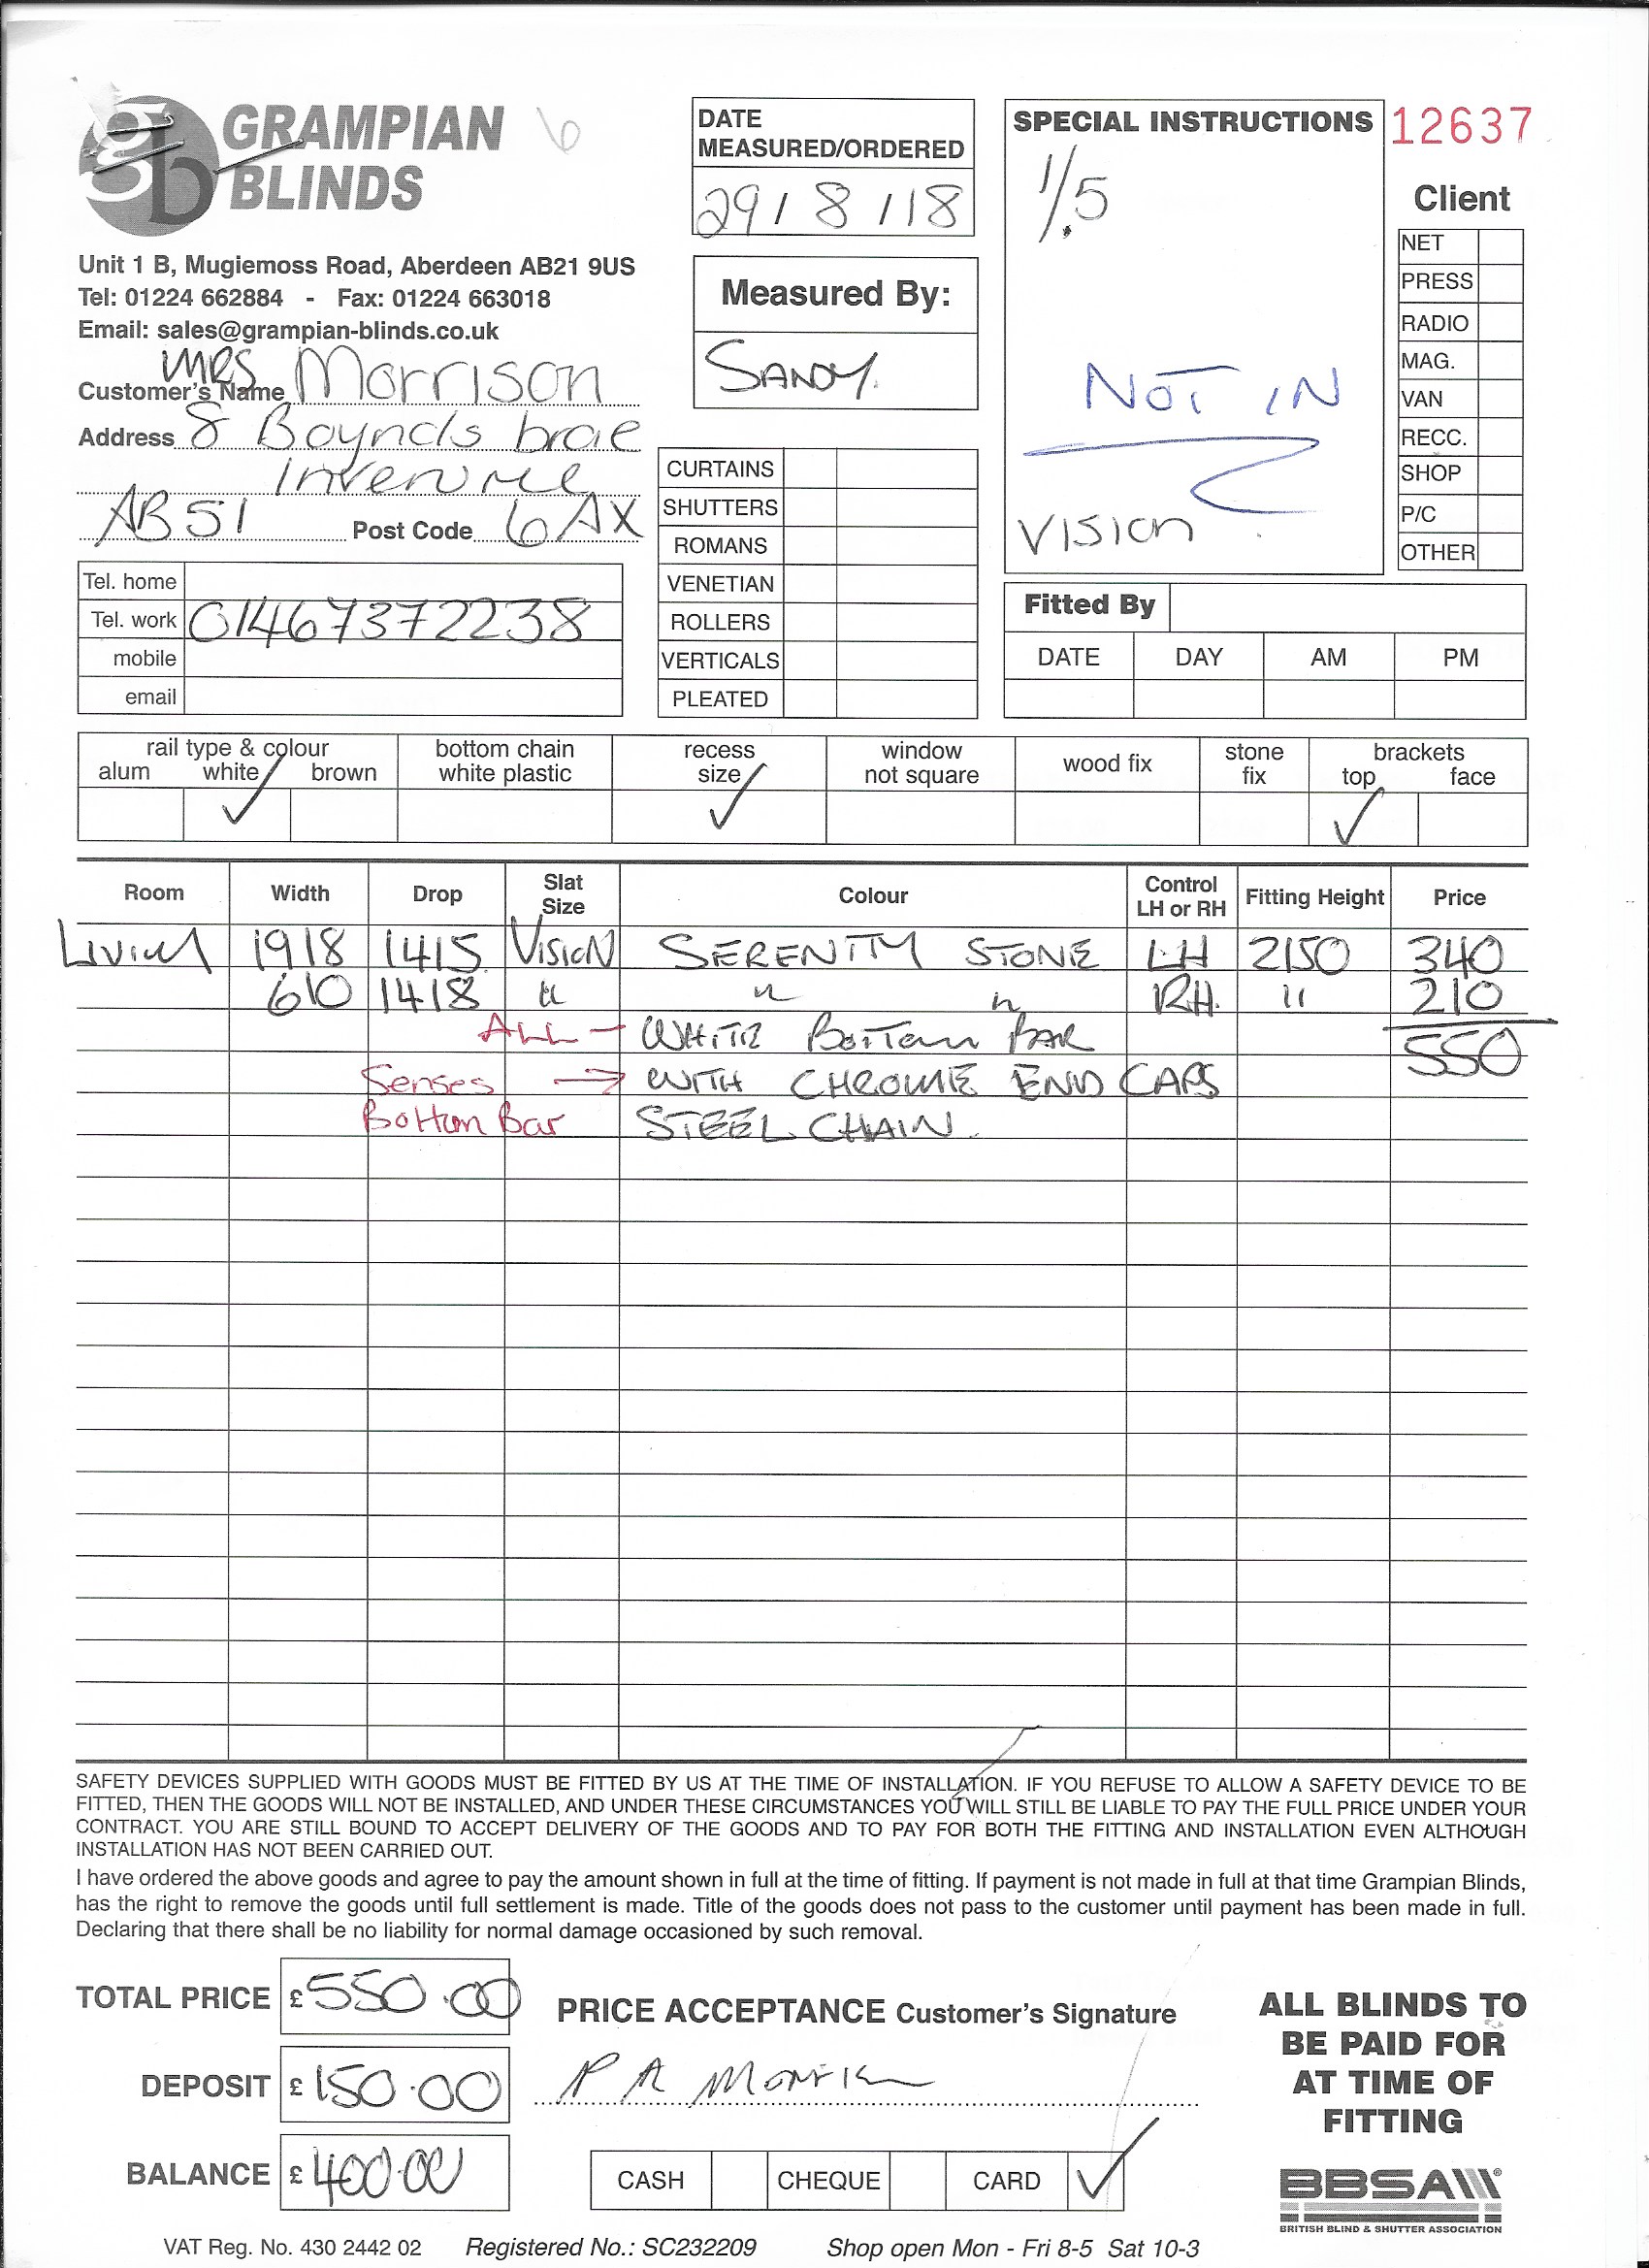 gb GRAMPIAN BLINDS
6
Unit 1 B, Mugiemoss Road, Aberdeen AB21 9US
Tel: 01224 662884 - Fax: 01224 663018
Email: sales@grampian-blinds.co.uk
Customer's Name Mrs Morrison
Address 8 Boynds brae
Inverurie
AB51 Post Code 6AX
Tel. home
Tel. work 01467372238
mobile
email
DATE
MEASURED/ORDERED
29/8/18
Measured By:
SANDY.
CURTAINS
SHUTTERS
ROMANS
VENETIAN
ROLLERS
VERTICALS
PLEATED
SPECIAL INSTRUCTIONS
1/5
NOT IN
VISION
12637
Client
NET
PRESS
RADIO
MAG.
VAN
RECC.
SHOP
P/C
OTHER
Fitted By
DATE DAY AM PM
rail type & colour bottom chain recess window wood fix stone brackets
alum white brown white plastic size not square fix top face
✓ ✓ ✓
Room Width Drop Slat Size Colour Control LH or RH Fitting Height Price
LIVING 1918 1415 VISION SERENITY STONE LH 2150 340
610 1418 " " " RH. 11 210
ALL - WHITE BOTTOM BAR 550
Senses → WITH CHROME END CAPS
Bottom Bar STEEL CHAIN.
SAFETY DEVICES SUPPLIED WITH GOODS MUST BE FITTED BY US AT THE TIME OF INSTALLATION. IF YOU REFUSE TO ALLOW A SAFETY DEVICE TO BE
FITTED, THEN THE GOODS WILL NOT BE INSTALLED, AND UNDER THESE CIRCUMSTANCES YOU WILL STILL BE LIABLE TO PAY THE FULL PRICE UNDER YOUR
CONTRACT. YOU ARE STILL BOUND TO ACCEPT DELIVERY OF THE GOODS AND TO PAY FOR BOTH THE FITTING AND INSTALLATION EVEN ALTHOUGH
INSTALLATION HAS NOT BEEN CARRIED OUT.
I have ordered the above goods and agree to pay the amount shown in full at the time of fitting. If payment is not made in full at that time Grampian Blinds,
has the right to remove the goods until full settlement is made. Title of the goods does not pass to the customer until payment has been made in full.
Declaring that there shall be no liability for normal damage occasioned by such removal.
TOTAL PRICE £550.00
DEPOSIT £150.00
BALANCE £400.00
PRICE ACCEPTANCE Customer's Signature
P A
CASH CHEQUE CARD ✓
ALL BLINDS TO
BE PAID FOR
AT TIME OF
FITTING
BBSA
BRITISH BLIND & SHUTTER ASSOCIATION
VAT Reg. No. 430 2442 02 Registered No.: SC232209 Shop open Mon - Fri 8-5 Sat 10-3